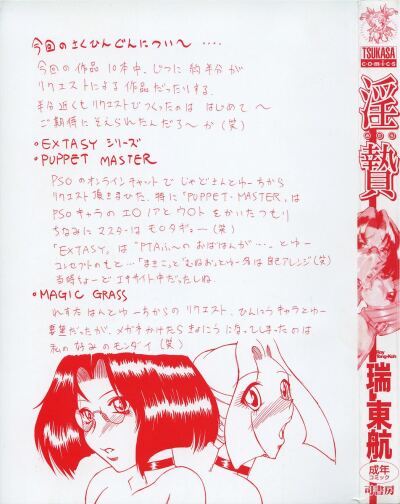 今回のさくひんぐんについて ....
今回の作品10本中、じつに約半分が
リクエストによる作品だったりする。
半分近くもリクエストでつくったのは はじめて〜
ご期待にそえられたんだろ〜か(笑)
•EXTASY シリーズ
•PUPPET MASTER
PSOのオンラインチャットで じゃどさんとゅーちから
リクエスト頂きまひた。特に「PUPPET・MASTER」は
PSOキャラのエロノアとウロトをかいたつもり
ちなみにマスターはモロダ゙ー(笑)
「EXTASY」は “PTAふ〜のおばはんが...” とゆー
コンセプトのもと...
当時ちょーどエキサイト中だったしね.
•MAGIC GRASS
れすたはんとゆーちからのリクエスト. ひんにうキャラとゆー
要望だったが、メガネかけたらきょにうになってしまったのは
私の好みのモンダイ(笑)
TSUKASA
comics
淫贄
Ruy
Tong-Koh
瑞東航
成年
コミック
司書房